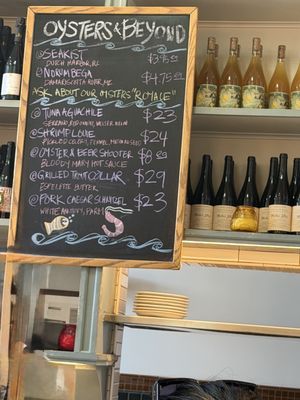 OYSTERS & BEYOND
@ SEAKIST $3.75
DUTCH HARBOR, RI
@ NORUMBEGA $4.75
DAMARISCOTTA RIVER, ME
ASK ABOUT OUR OYSTERS
@ TUNA AGUACHILE $23
@ SHRIMP LOUIE $24
PICKLED CELERY, FENNEL,
@ OYSTER N BEER SHOOTER $8
BLOODY MARY HOT SAUCE
@ GRILLED TROUT COLLAR $29
ESPELETTE BUTTER
@ PORK CAESAR SCHNITZEL $23
WHITE ANCHOVY, PARM